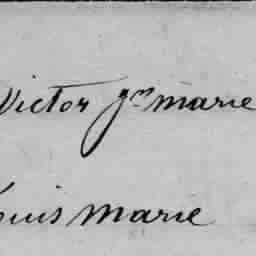 Victor Jn marie
Louis Marie